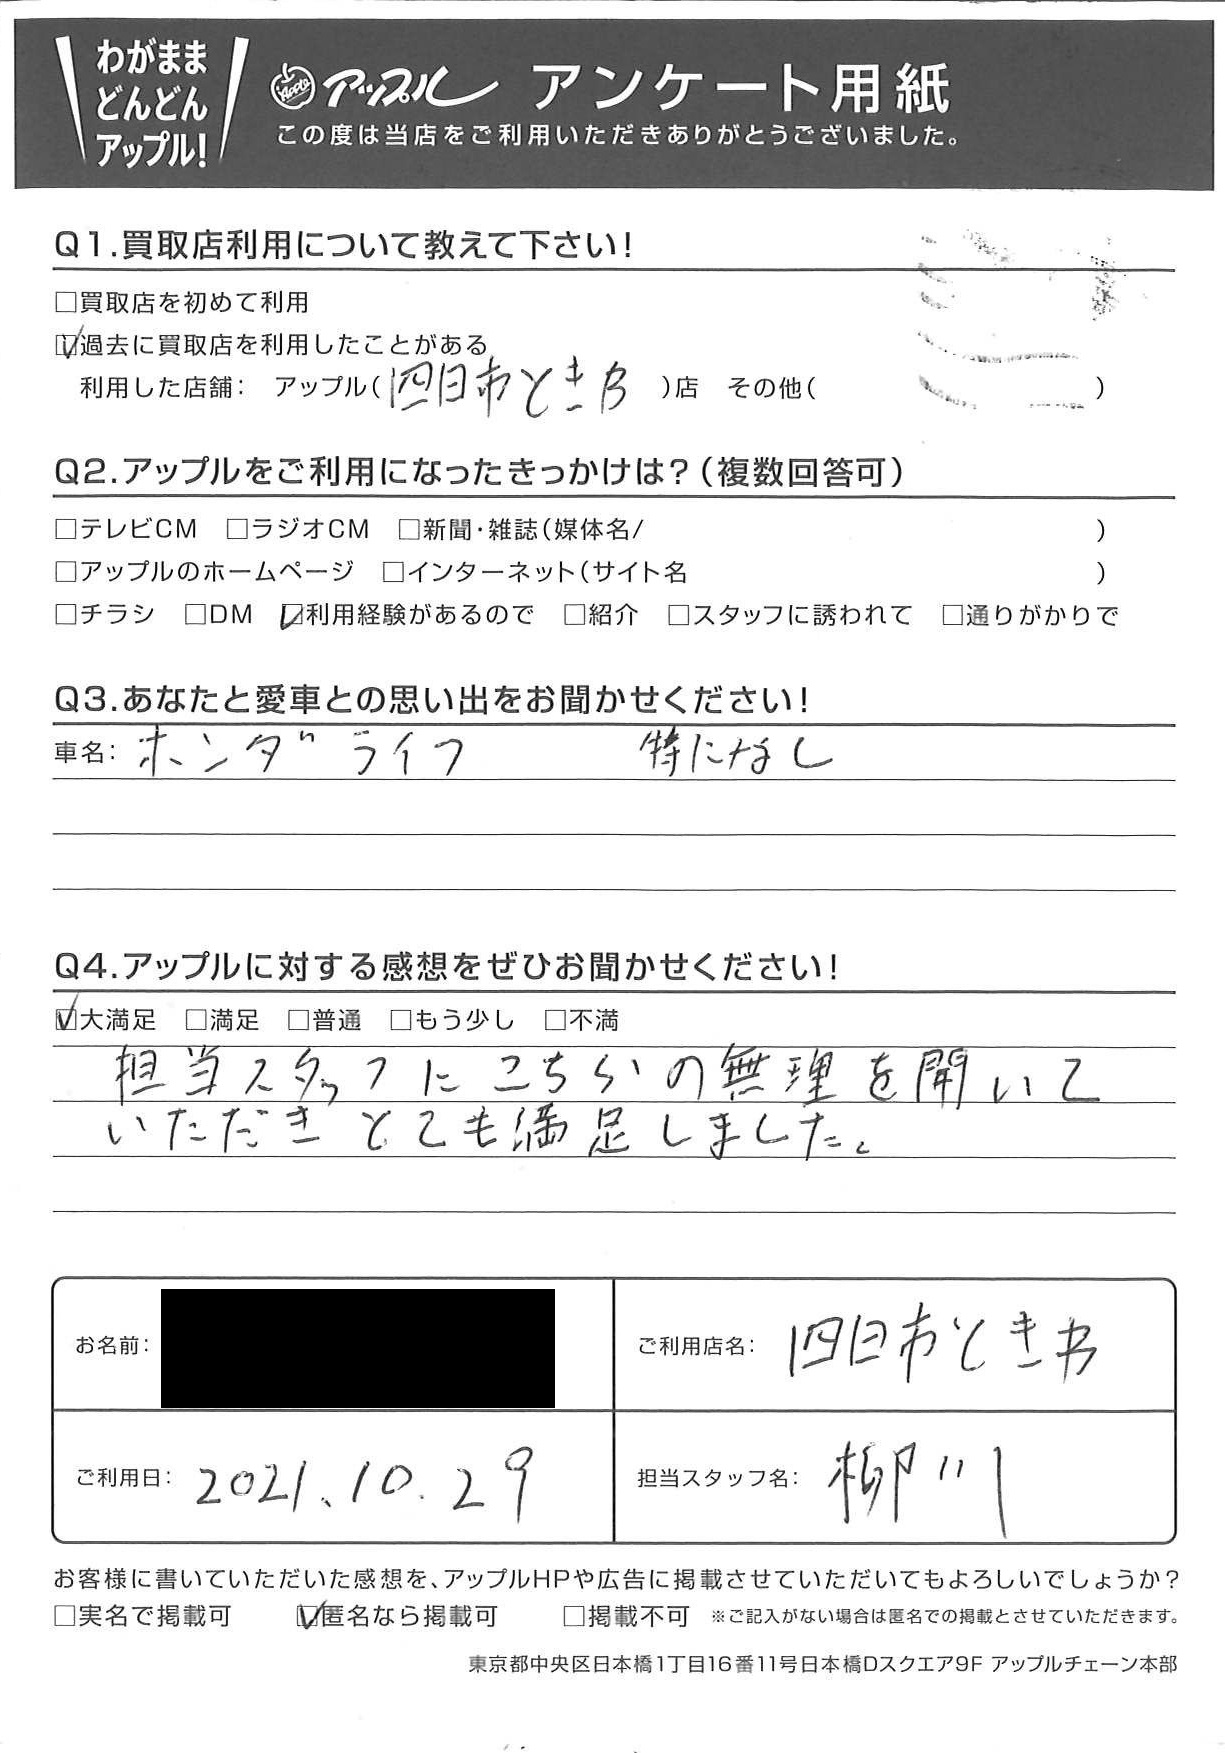 わがまま
どんどん
アップル!
Apple アップル アンケート用紙
この度は当店をご利用いただきありがとうございました。
Q1.買取店利用について教えて下さい!
□買取店を初めて利用
☑過去に買取店を利用したことがある
利用した店舗: アップル(四日市ときわ)店 その他( )
Q2.アップルをご利用になったきっかけは?(複数回答可)
□テレビCM □ラジオCM □新聞・雑誌(媒体名/ )
□アップルのホームページ □インターネット(サイト名 )
□チラシ □DM ☑利用経験があるので □紹介 □スタッフに誘われて □通りがかりで
Q3.あなたと愛車との思い出をお聞かせください!
車名: ホンダ ライフ 特になし
Q4.アップルに対する感想をぜひお聞かせください!
☑大満足 □満足 □普通 □もう少し □不満
担当スタッフにこちらの無理を聞いて
いただきとても満足しました。
お名前:
ご利用店名: 四日市ときわ
ご利用日: 2021.10.29
担当スタッフ名: 柳川
お客様に書いていただいた感想を、アップルHPや広告に掲載させていただいてもよろしいでしょうか?
□実名で掲載可 ☑匿名なら掲載可 □掲載不可 ※ご記入がない場合は匿名での掲載とさせていただきます。
東京都中央区日本橋1丁目16番11号日本橋Dスクエア9F アップルチェーン本部